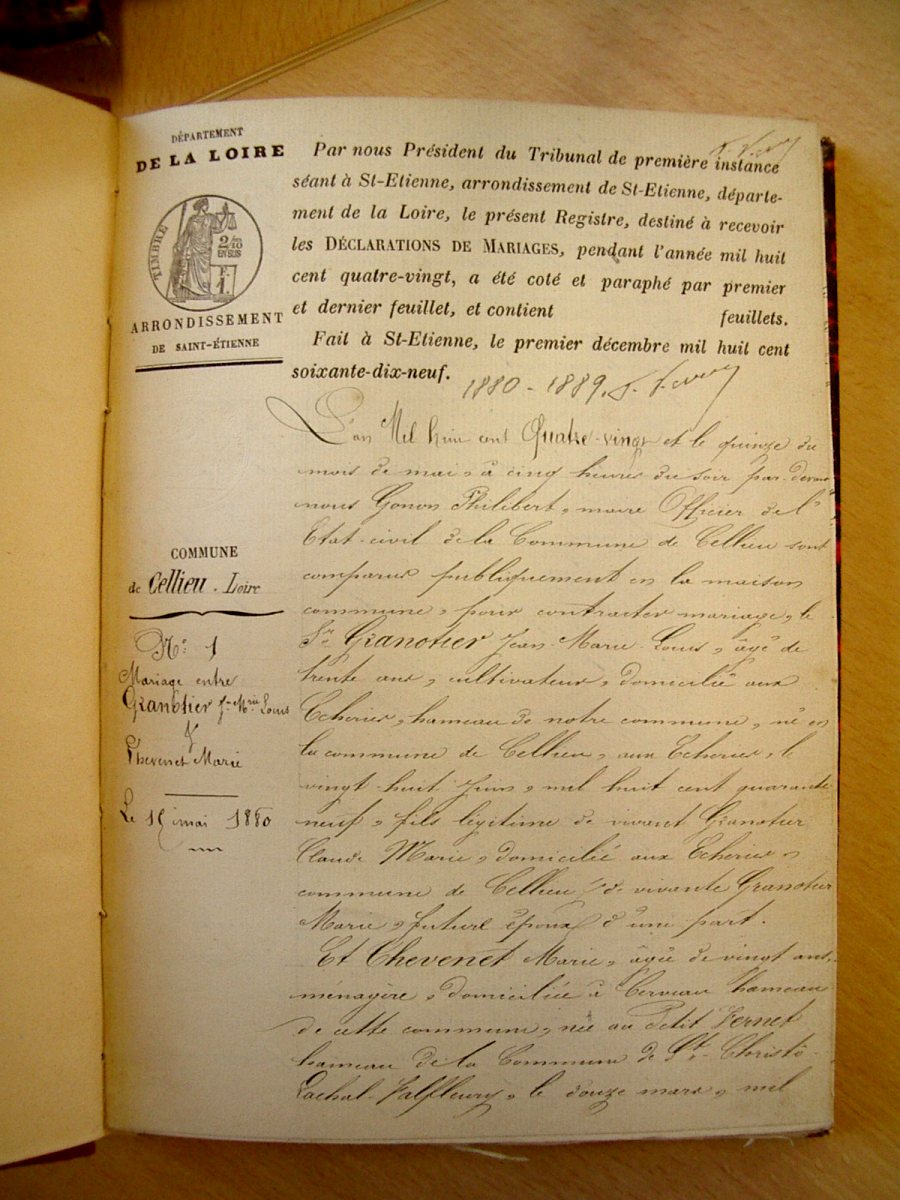 DÉPARTEMENT
DE LA LOIRE
TIMBRE
2/10
EN SUS
F
1.
ARRONDISSEMENT
DE SAINT-ÉTIENNE
Par nous Président du Tribunal de première instance
séant à St-Etienne, arrondissement de St-Etienne, départe-
ment de la Loire, le présent Registre, destiné à recevoir
les DÉCLARATIONS DE MARIAGES, pendant l'année mil huit
cent quatre-vingt, a été coté et paraphé par premier
et dernier feuillet, et contient feuillets.
Fait à St-Etienne, le premier décembre mil huit cent
soixante-dix-neuf.
1880 - 1889.
COMMUNE
de Cellieu . Loire
No. 1
Mariage entre
Granotier Jn Mie Louis
&
Chevenet Marie
Le 15 mai 1880
L'an Mil huit cent Quatre-vingt et le quinze du
mois de mai, à cinq heures du soir par-devant
nous Gonon Philibert, maire Officier de l'
Etat-civil de la Commune de Cellieu sont
comparus publiquement en la maison
commune, pour contracter mariage, le
Sr Granotier Jean-Marie-Louis, âgé de
trente ans, cultivateur, domicilié aux
Echeries, hameau de notre commune, né en
la commune de Cellieu, aux Echeries, le
vingt-huit Juin, mil huit cent quarante
neuf, fils légitime de vivant Granotier
Claude Marie, domicilié aux Echeries,
commune de Cellieu & de vivante Granotier
Marie, futur époux d'une part.
Et Chevenet Marie, âgée de vingt ans,
ménagère, domiciliée à hameau
de cette commune, née au Petit Vernet
hameau de la Commune de St-Christô-
Lachal-Valfleury, le douze mars, mil